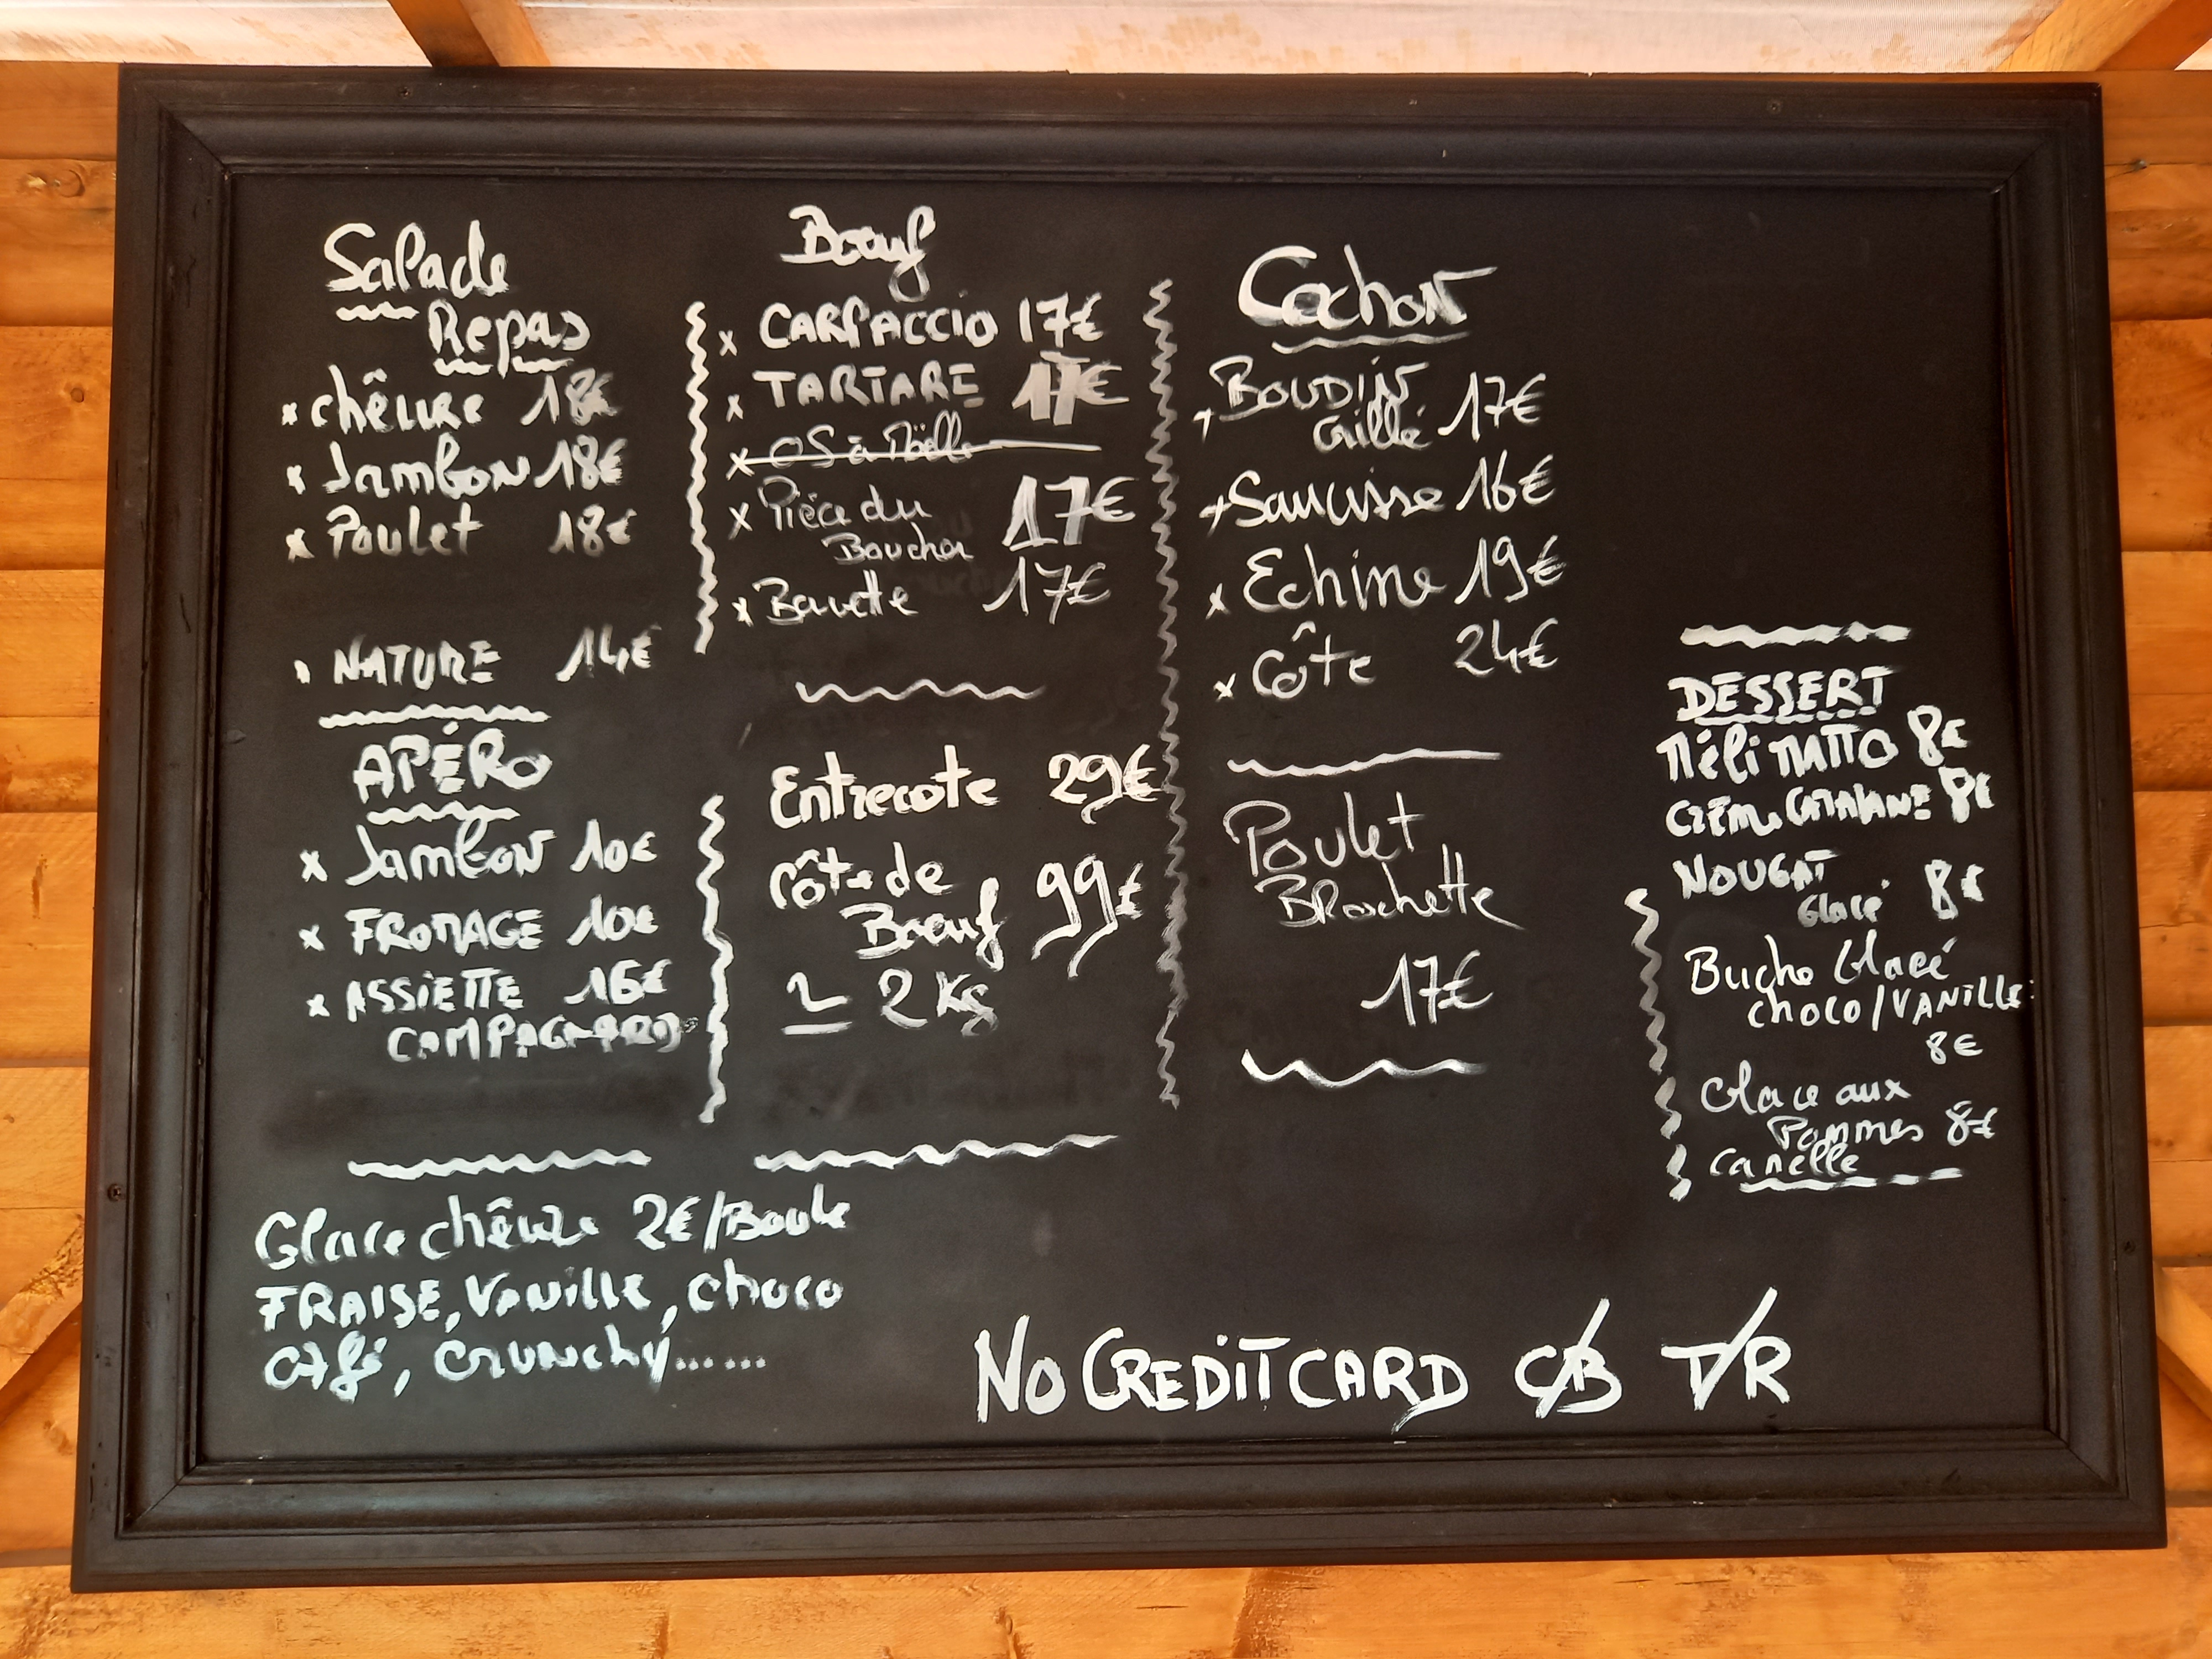 Salade
Repas
x chêvre 18€
x Jambon 18€
x Poulet 18€
NATURE 14€
APÉRO
x Jambon 10€
x FROMAGE 10€
x ASSIETTE 16€
CAMPAGNARD
Glace chêvre 2€/Boule
FRAISE, Vanille, choco
café, crunchy......
Bœuf
x CARPACCIO 17€
x TARTARE 17€
x OS à Möelle
x Pièce du
Boucher 17€
x Bavette 17€
Entrecote 29€
Côte de
Bœuf 99€
2 Kg
Cochon
Boudin
Grillé 17€
Saucisse 16€
x Echine 19€
x Côte 24€
Poulet
Brochette
17€
DESSERT
Méli MATTO 8€
Crème CATALANE 8€
NOUGAT
Glacé 8€
Buche Glacé
choco/VANILLE
8€
Glace aux
Pommes 8€
Canelle
NO CREDIT CARD C/B T/R